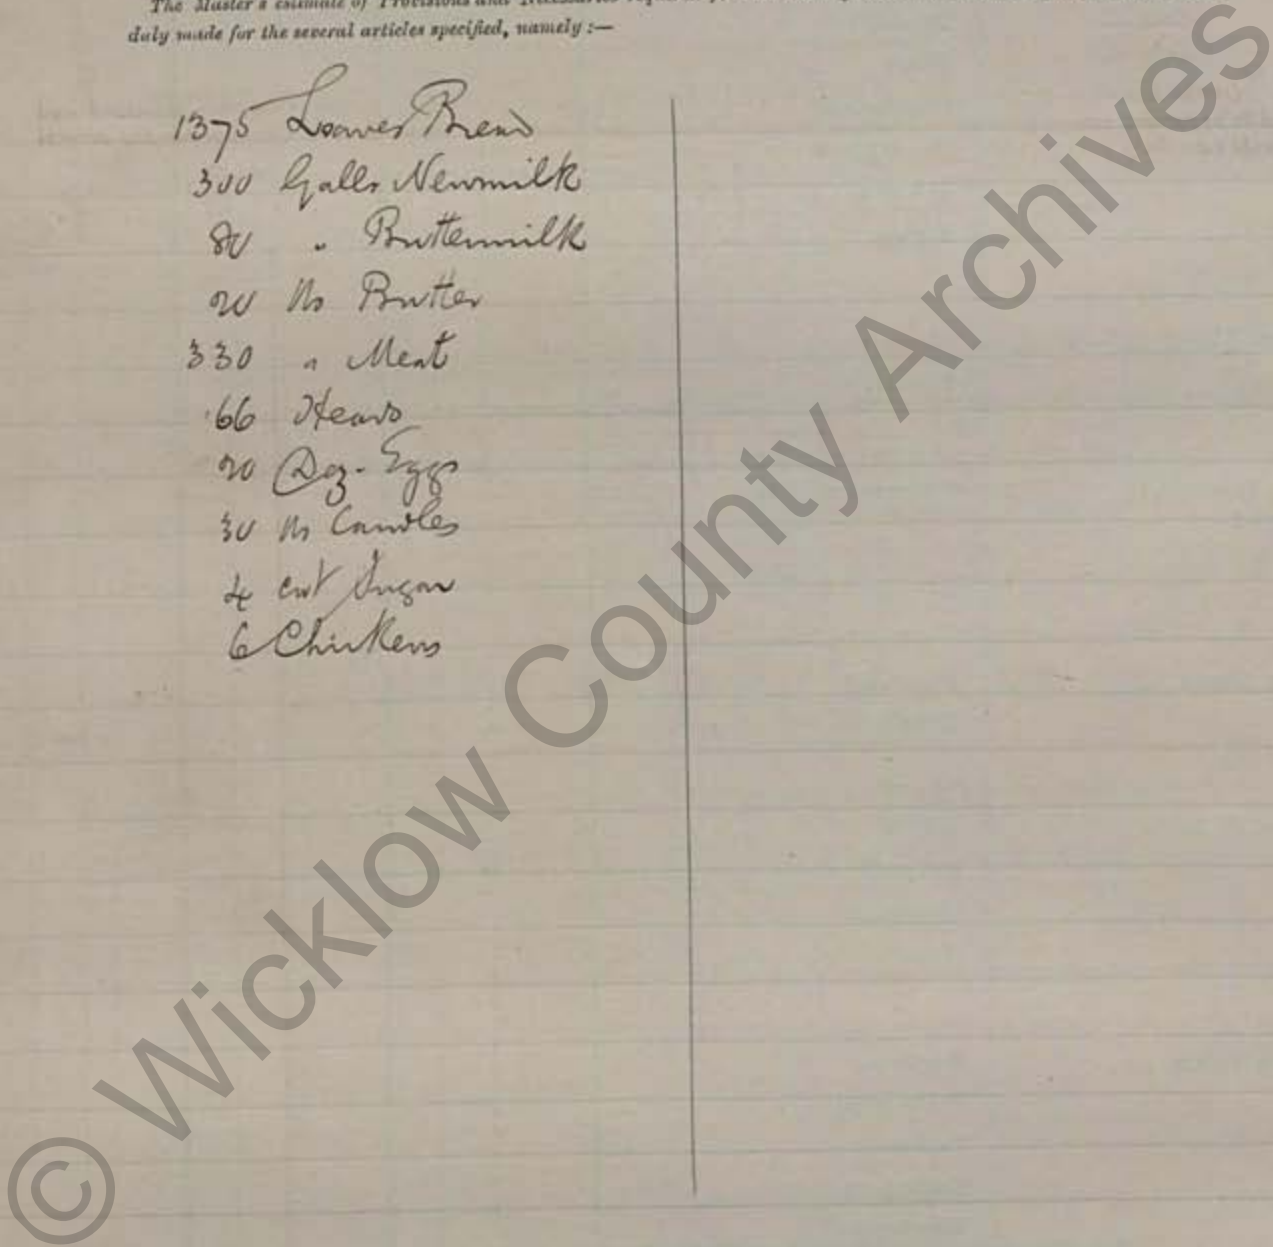 The Master's estimate of Provisions and Necessaries
duly made for the several articles specified, namely :—
1375 Loaves Bread
300 Galls Newmilk
80 " Buttermilk
20 lbs Butter
330 " Meat
66 Heads
20 Doz. Eggs
30 lbs Candles
4 cwt Sugar
6 Chickens
© Wicklow County Archives